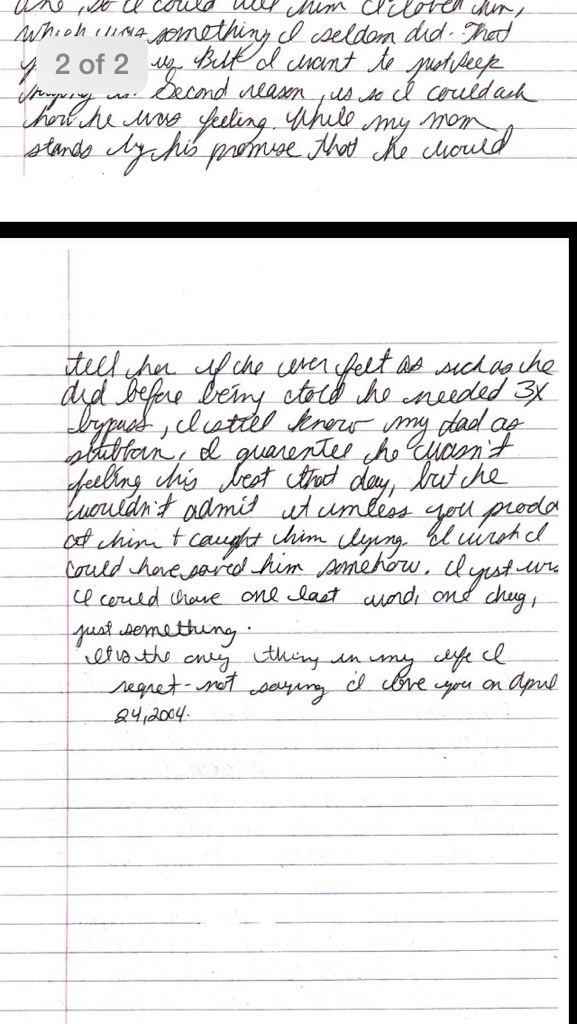 one, so I could tell him I loved him,
which was something I seldom did. That
2 of 2
But I want to just keep
Second reason, is so I could ask
how he was feeling. While my mom
stands by his promise that he would
tell her if he ever felt as sick as he
did before being told he needed 3X
bypass, I still know my dad as
stubborn, I guarentee he wasn't
feeling his best that day, but he
wouldn't admit it unless you prodd
at him + caught him lying. I wish I
could have saved him somehow. I just wis
I could have one last word, one hug,
just something.
It is the only thing in my life I
regret - not saying I love you on April
24, 2004.